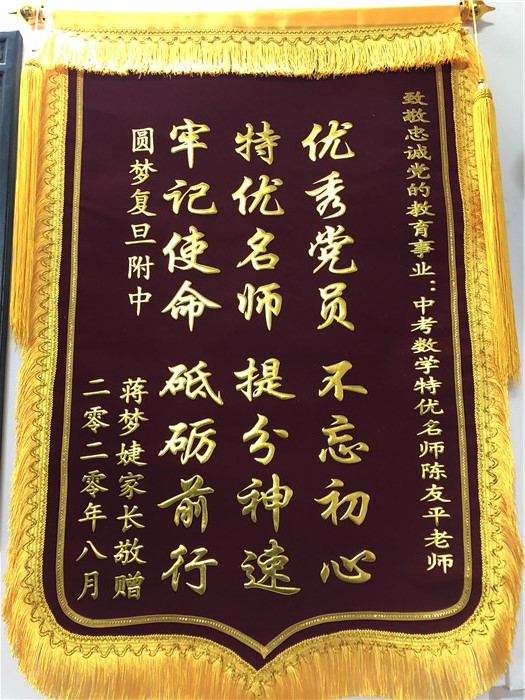 致敬忠诚党的教育事业：中考数学特优名师陈友平老师
优秀党员 不忘初心
特优名师 提分神速
牢记使命 砥砺前行
圆梦复旦附中
蒋梦婕家长敬赠
二零二零年八月